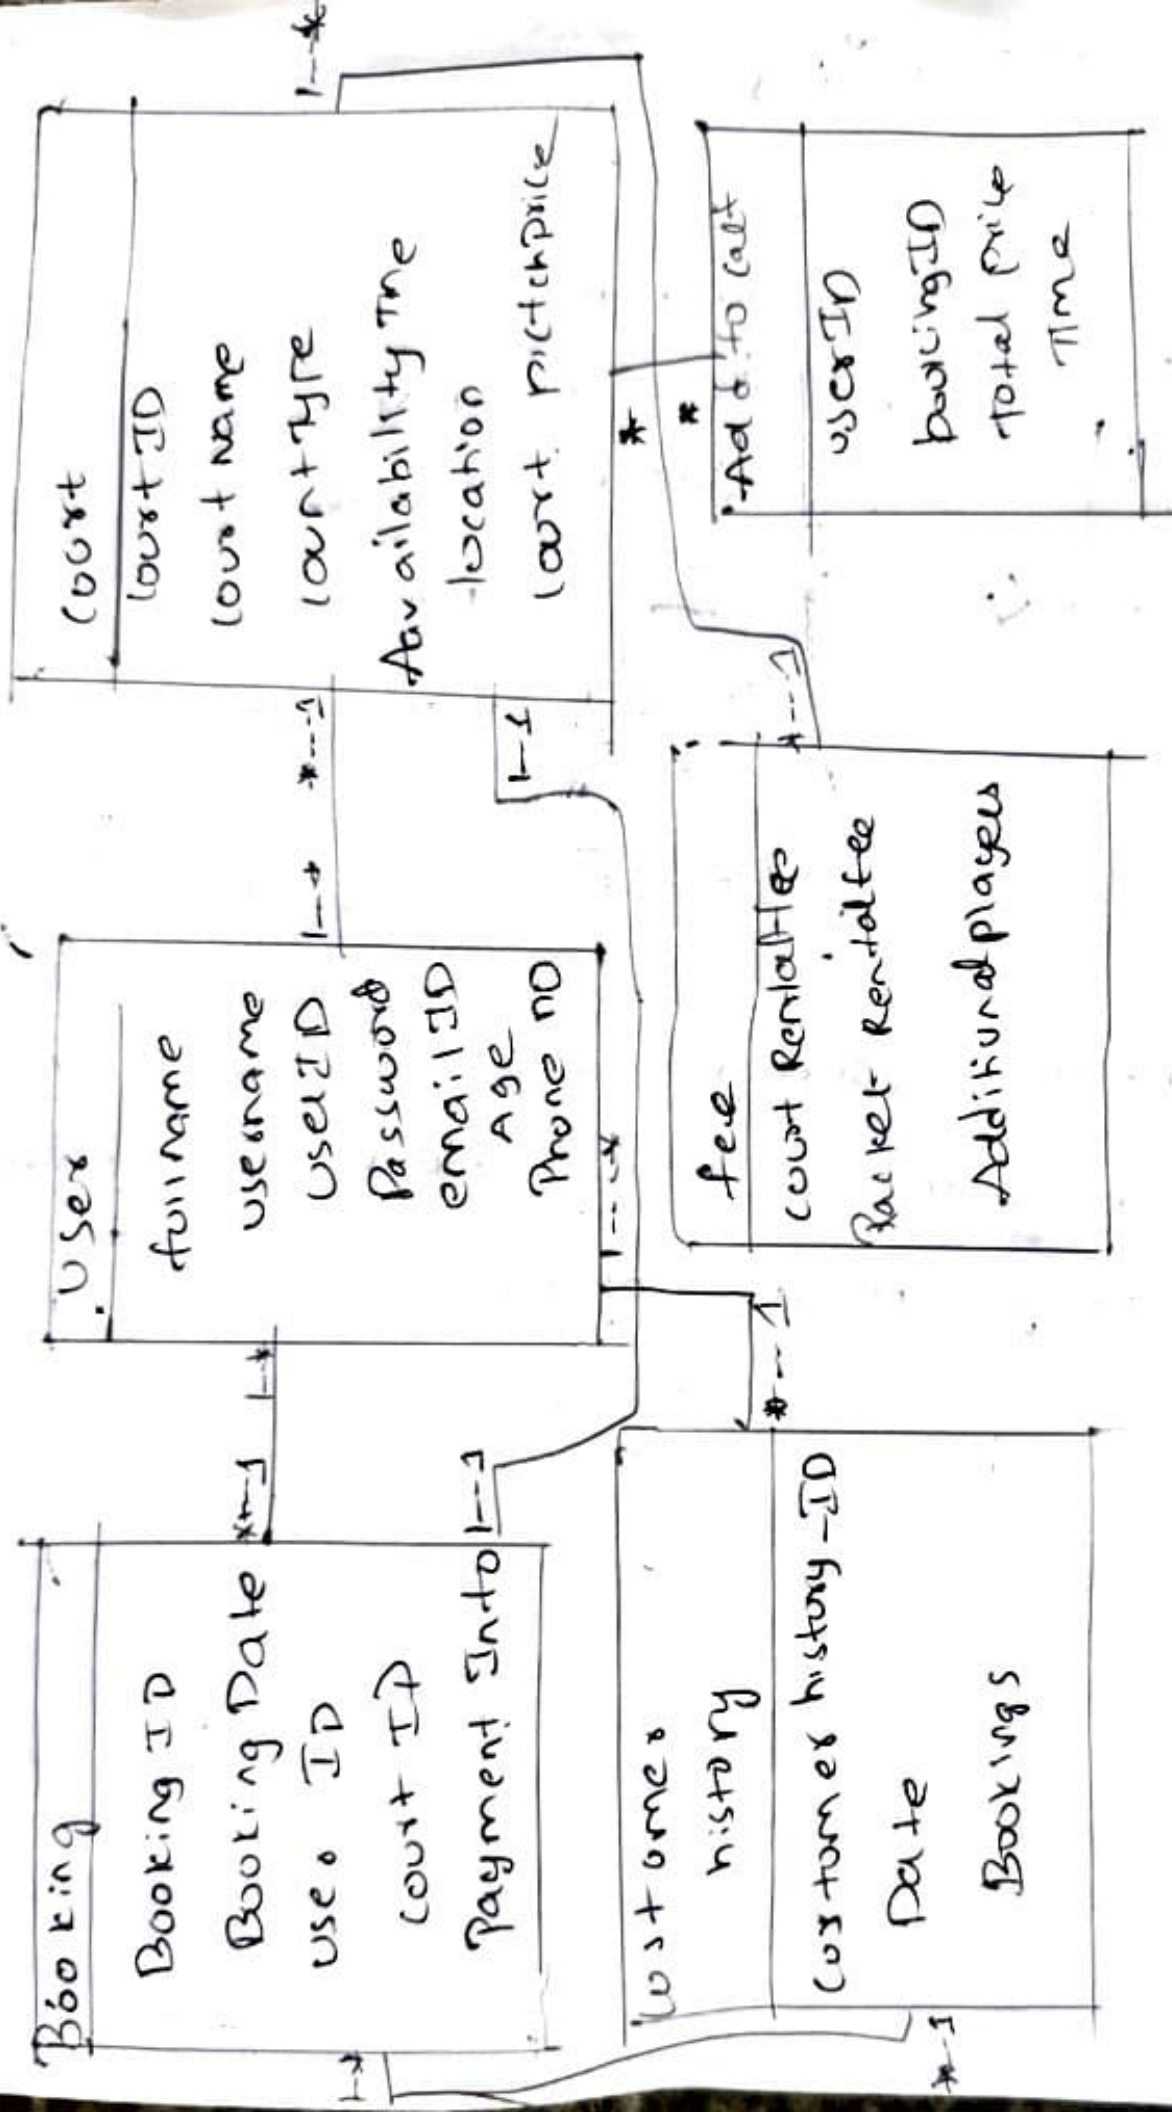 Booking
Booking ID
Booking Date
Use. ID
Court ID
Payment Info
1--*
*--1
1--1
User
full name
username
UserID
Password
emailID
Age
Phone no
1--*
1--*
1---*
Court
Court ID
Court Name
Court Type
Aavailability Time
location
Court pictchprice
*---1
1--1
1--*
*
*
Customer
history
Customer history-ID
Date
Bookings
*--1
*--1
fee
Court Rental fee
Racket Rental fee
Additional players
*---1
Add to cart
userID
bookingID
Total price
Time